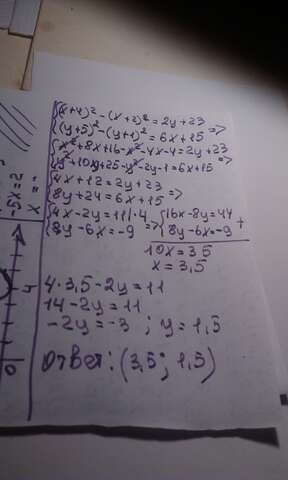 {(x+4)² - (x+2)² = 2y+23
{(y+5)² - (y+1)² = 6x+15 =>
{x²+8x+16-x²-4x-4=2y+23
{y²+10y+25-y²-2y-1=6x+15 =>
{4x+12=2y+23
{8y+24=6x+15 =>
{4x-2y=11|·4 {16x-8y=44
{8y-6x=-9 => {8y-6x=-9 +
10x=35
x=3,5
4·3,5-2y=11
14-2y=11
-2y=-3 ; y=1,5
Ответ: (3,5; 1,5)
-5x=2
x=-
4
0